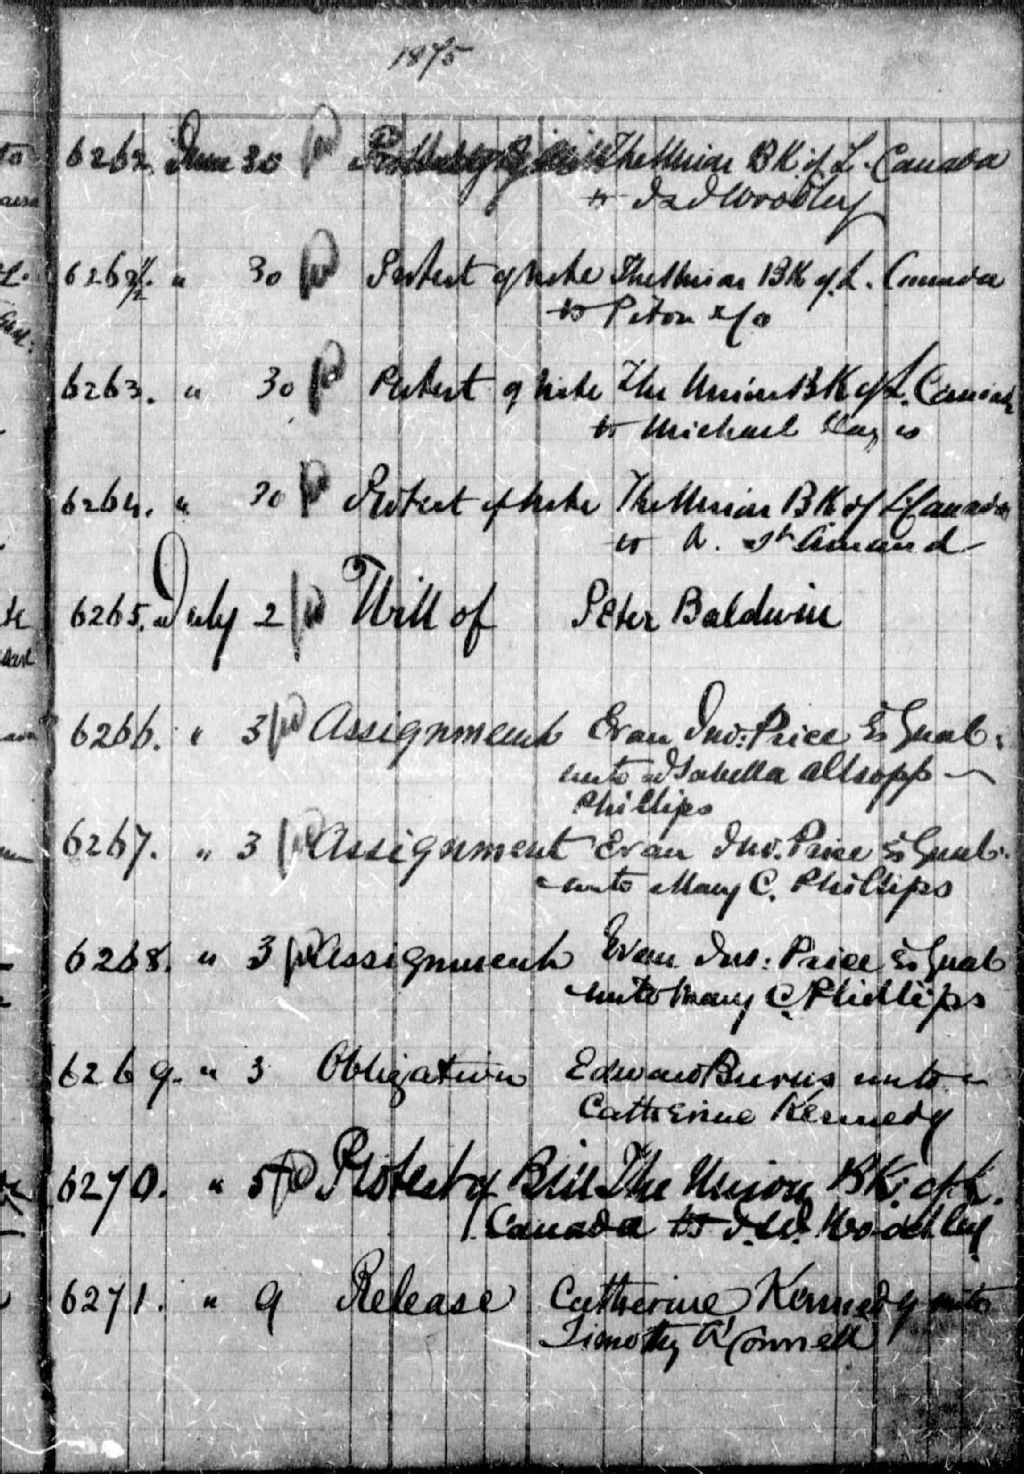 1875
6262. June 30 Protest of Bill The Union BK. of L. Canada
to J. W. Woodley
6262½. " 30 Protest of Note The Union BK of L. Canada
to Piton & Co
6263. " 30 Protest of Note The Union BK of L. Canada
to Michael
6264. " 30 Protest of Note The Union BK of L Canada
to A. St Amand
6265. July 2 Will of Peter Baldwin
6266. " 3 Assignment Evan Jno: Price Es Qual.
unto Isabella Allsopp
Phillips
6267. " 3 Assignment Evan Jno. Price Es Qual.
unto Mary C. Phillips
6268. " 3 Assignment Evan Jno: Price Es Qual
unto Mary C. Phillips
6269. " 3 Obligation Edward Burns unto
Catherine Kennedy
6270. " 5 Protest of Bill The Union BK. of L.
Canada to J. W. Woodley
6271. " 9 Release Catherine Kennedy unto
Timothy O'Connell